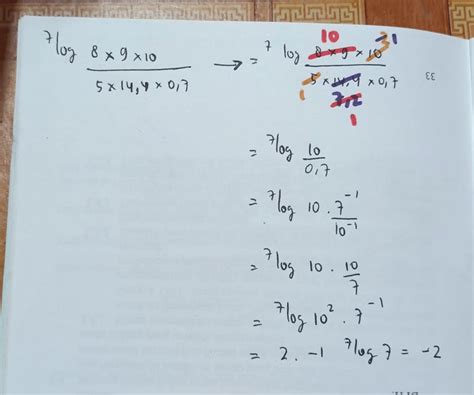 ⁷log (8 × 9 × 10)/(5 × 14,4 × 0,7) → = ⁷log (8 × 9 × 10)/(5 × 14,4 × 0,7)
10
21
1
7,2
1
33
= ⁷log 10/0,7
= ⁷log 10 . 7⁻¹/10⁻¹
= ⁷log 10 . 10/7
= ⁷log 10² . 7⁻¹
= 2 . -1 ⁷log 7 = -2